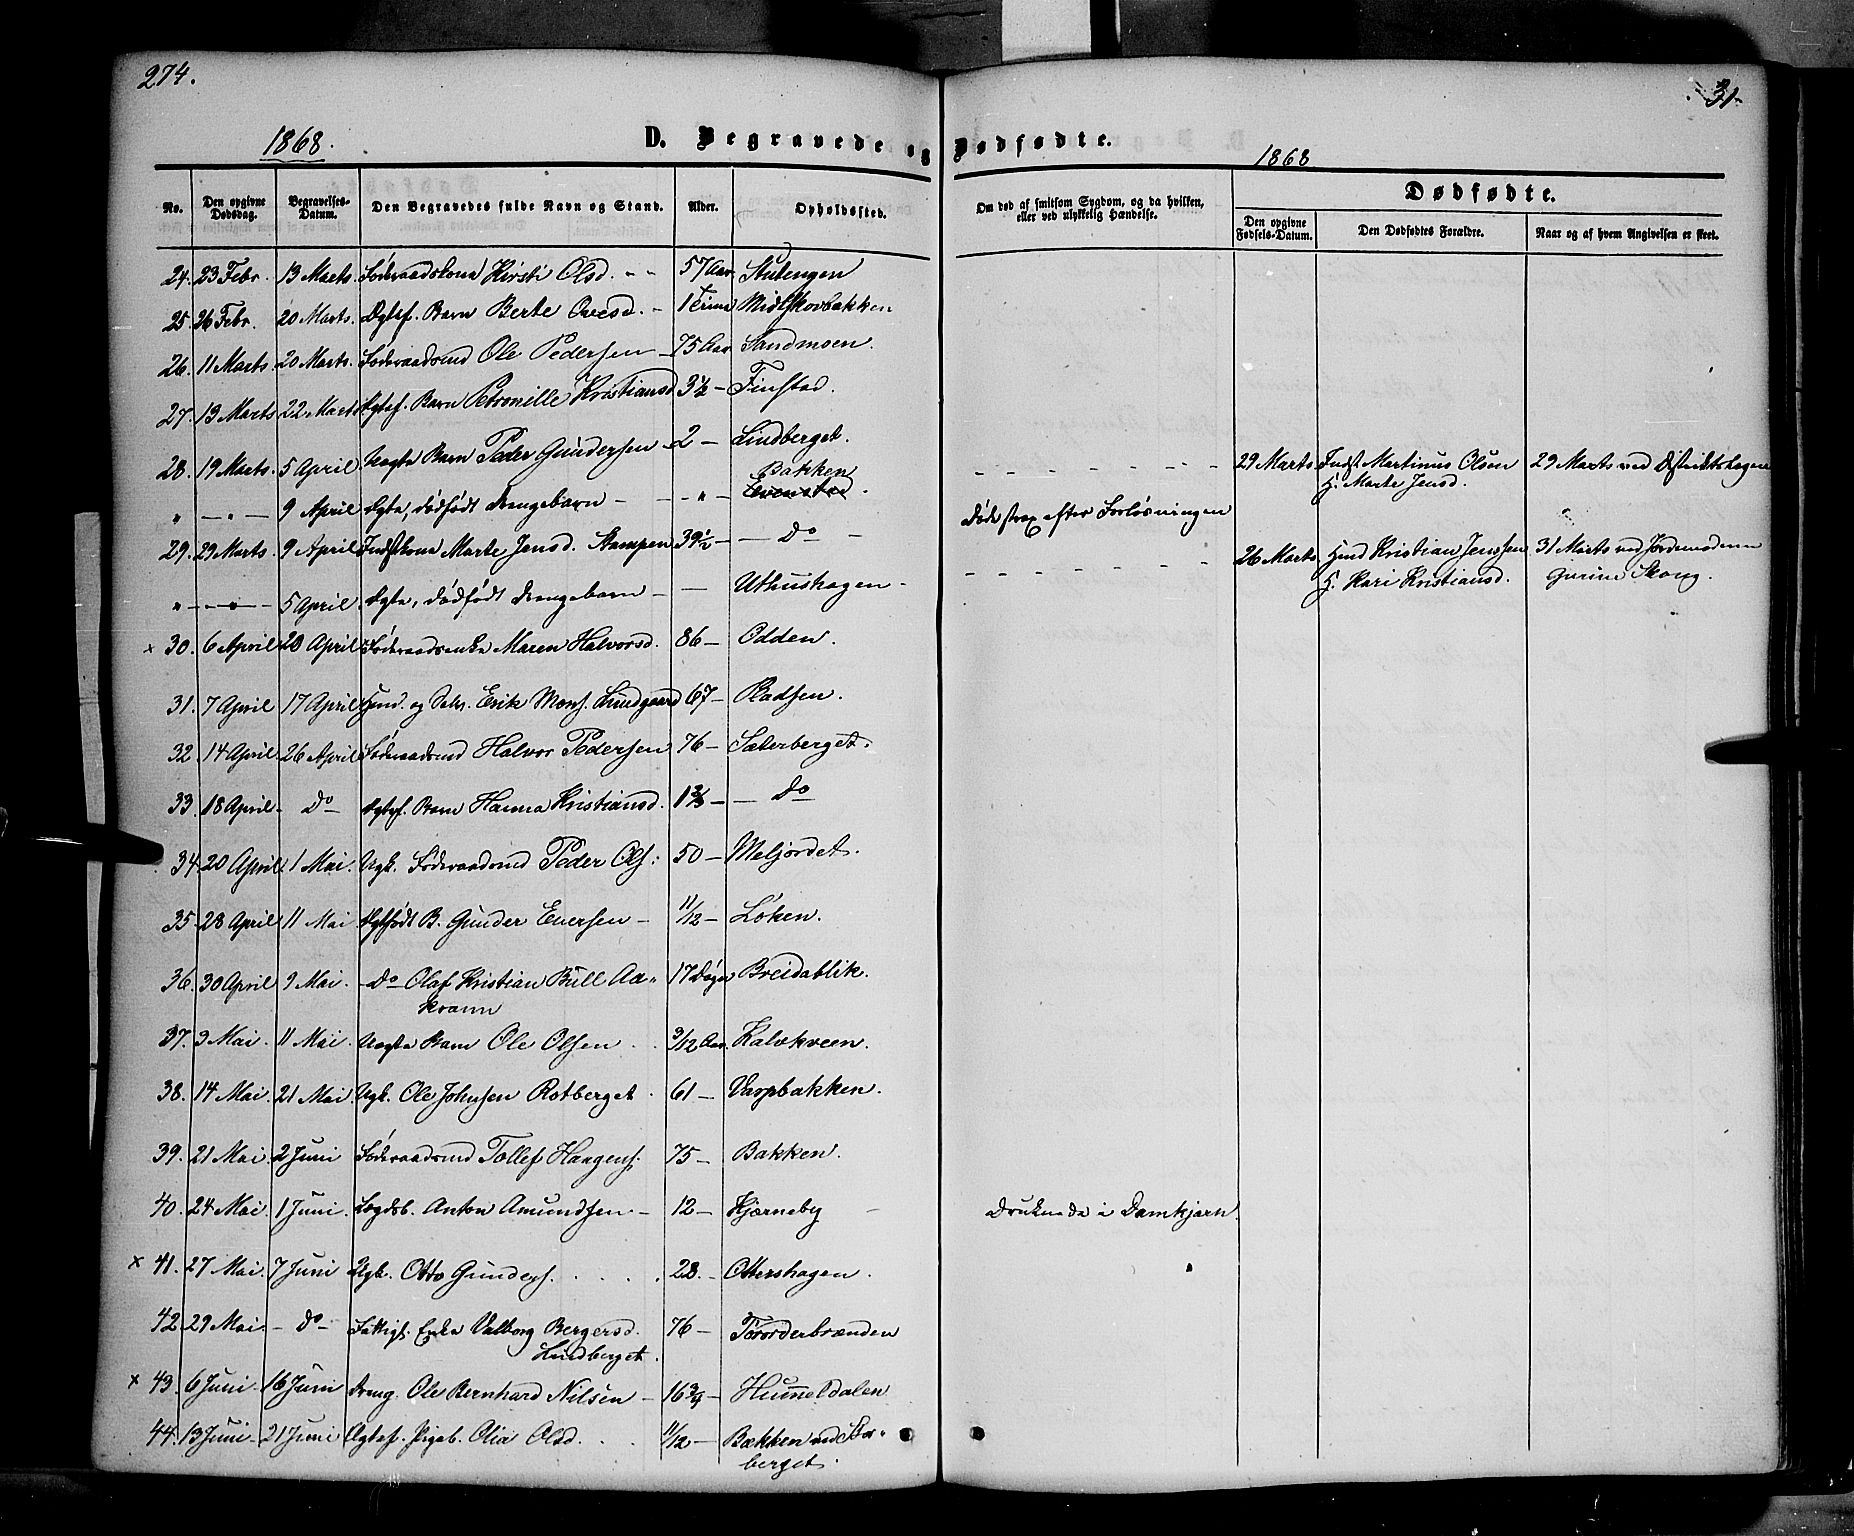 274.
31.
1868.
D. Begravede og Dødfødte.
1868
No.
Den opgivne Dødsdag.
Begravelses-Datum.
Den Begravedes fulde Navn og Stand.
Alder.
Opholdssted.
Om død af smitsom Sygdom, og da hvilken, eller ved ulykkelig Hændelse.
Dødfødte.
Den opgivne Fødsels-Datum.
Den Dødfødtes Forældre.
Naar og af hvem Angivelsen er skeet.
24. 23 Febr. 13 Marts. Føderaadskone Kirsti Olsd. 57 Aar Stutengen
25 26 Febr. 20 Marts. Ægtef. Barn Berte Ovesd. Midtskovbakken
26. 11 Marts 20 Marts. Føderaadsmd Ole Pedersen 75 Aar Sandmoen.
27. 13 Marts 22 Marts Ægtef. Barn Petronille Kristiansd 3½ Finstad.
28. 19 Marts. 5 April Uægte Barn Peder Gundersen 2 Lindberget.
Bakken
" 9 April Ægte, dødfødt Drengebarn Evenstad. 29 Marts Indst Martinus Olsen 29 Marts ved Distriktslægen
H. Marte Jensd.
29. 29 Marts. 9 April Indstkone Marte Jensd. Stampen 39½ Do Døde strax efter Forløsningen
" 5 April Ægte, dødfødt Drengebarn Uthushagen 26 Marts Hmd Kristian Jenssen 31 Marts ved Jordemoderen
H. Kari Kristiansd. Gurine Skong.
× 30. 6 April 20 April Føderaadsenke Maren Halvorsd. 86 Odden.
31. 7 April 17 April Hmd. og Selv. Erik Mons. Lindgaard 67 Pladsen.
32. 14 April. 26 April Føderaadsmd Halvor Pedersen 76 Sæterberget.
33. 18 April. Do Ægtef. Barn Hanna Kristiansd. 1⅔ Do
34. 20 April 1 Mai. Ugk. Føderaadsmd Peder Ols: 50 Meljordet.
35. 28 April 11 Mai Ægtefødt B. Gunder Eversen 11/12 Løken.
36. 30 April 9 Mai. Do Olaf Kristian Bull Aa-
krann 17 Døgn Breidablik.
37. 3 Mai. 11 Mai. Uægte Barn Ole Olsen 3/12 Aar. Kalvkveen.
38. 14 Mai. 21 Mai. Ugk. Ole Johnsen Rotberget 61 Varpbakken.
39. 21 Mai. 2 Juni Føderaadsmd Tollef Haagens. 75 Bakken.
40. 24 Mai. 1 Juni. Legdsb. Anton Amundsen. 12 Kjærneby Druknede i Damkjærn.
× 41. 27 Mai. 7 Juni Ugk. Otto Gunders. 28. Ottershagen.
42. 29 Mai. Do Fattigl. Enke Valborg Bergersd.
Lindberget. 76 Törorderbrænden
× 43. 6 Juni. 16 Juni Dreng. Ole Bernhard Nilsen 16¾ Hummeldalen
44. 13 Juni. 21 Juni Ægtef. Pigeb. Olia Olsd. 11/12 Bækken ved Stor-
berget.